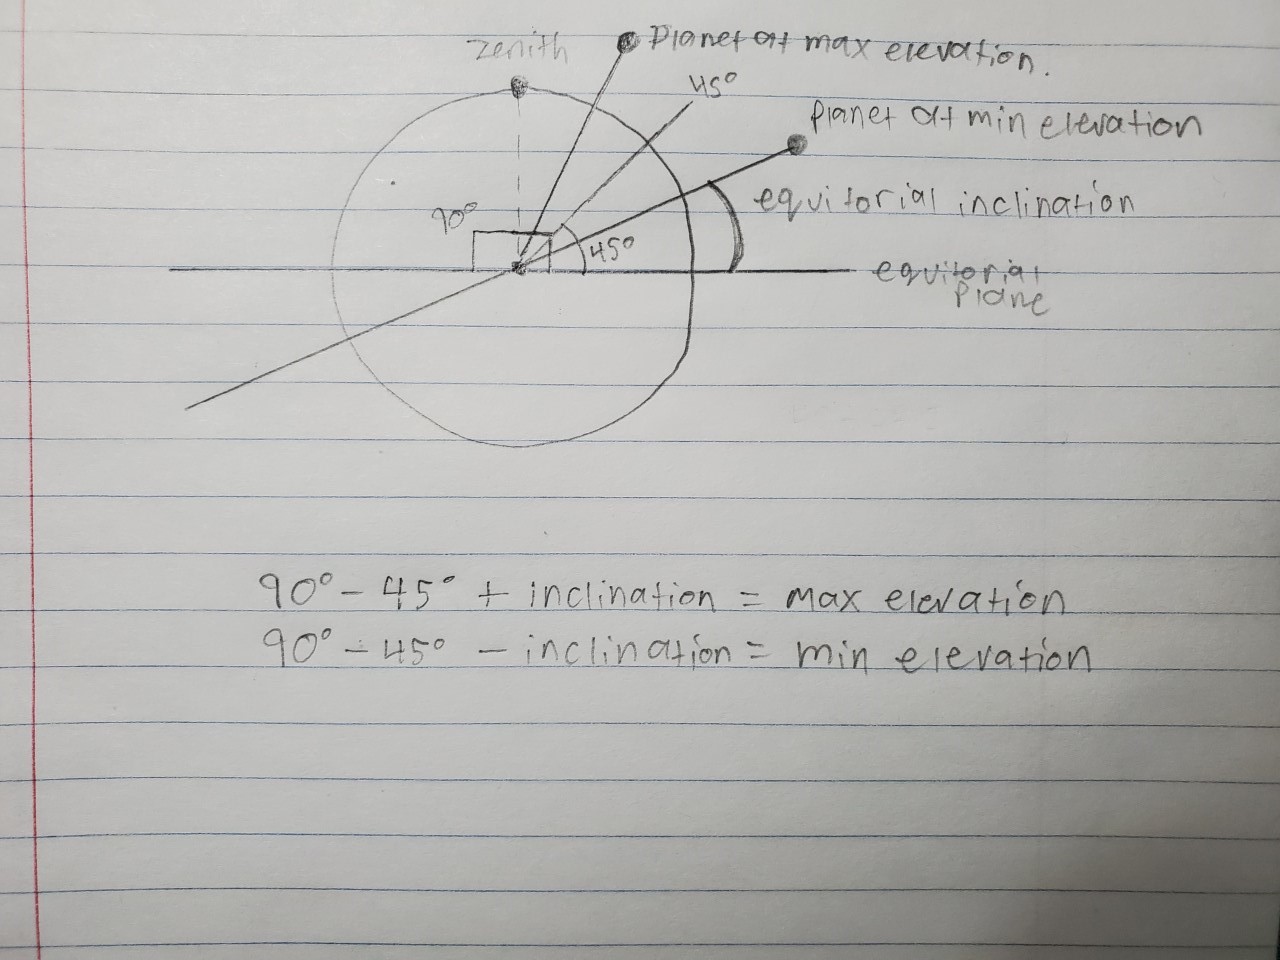 zenith
Planet at max elevation.
45°
Planet at min elevation
equitorial inclination
90°
45°
equitorial
Plane
90° - 45° + inclination = max elevation
90° - 45° - inclination = min elevation